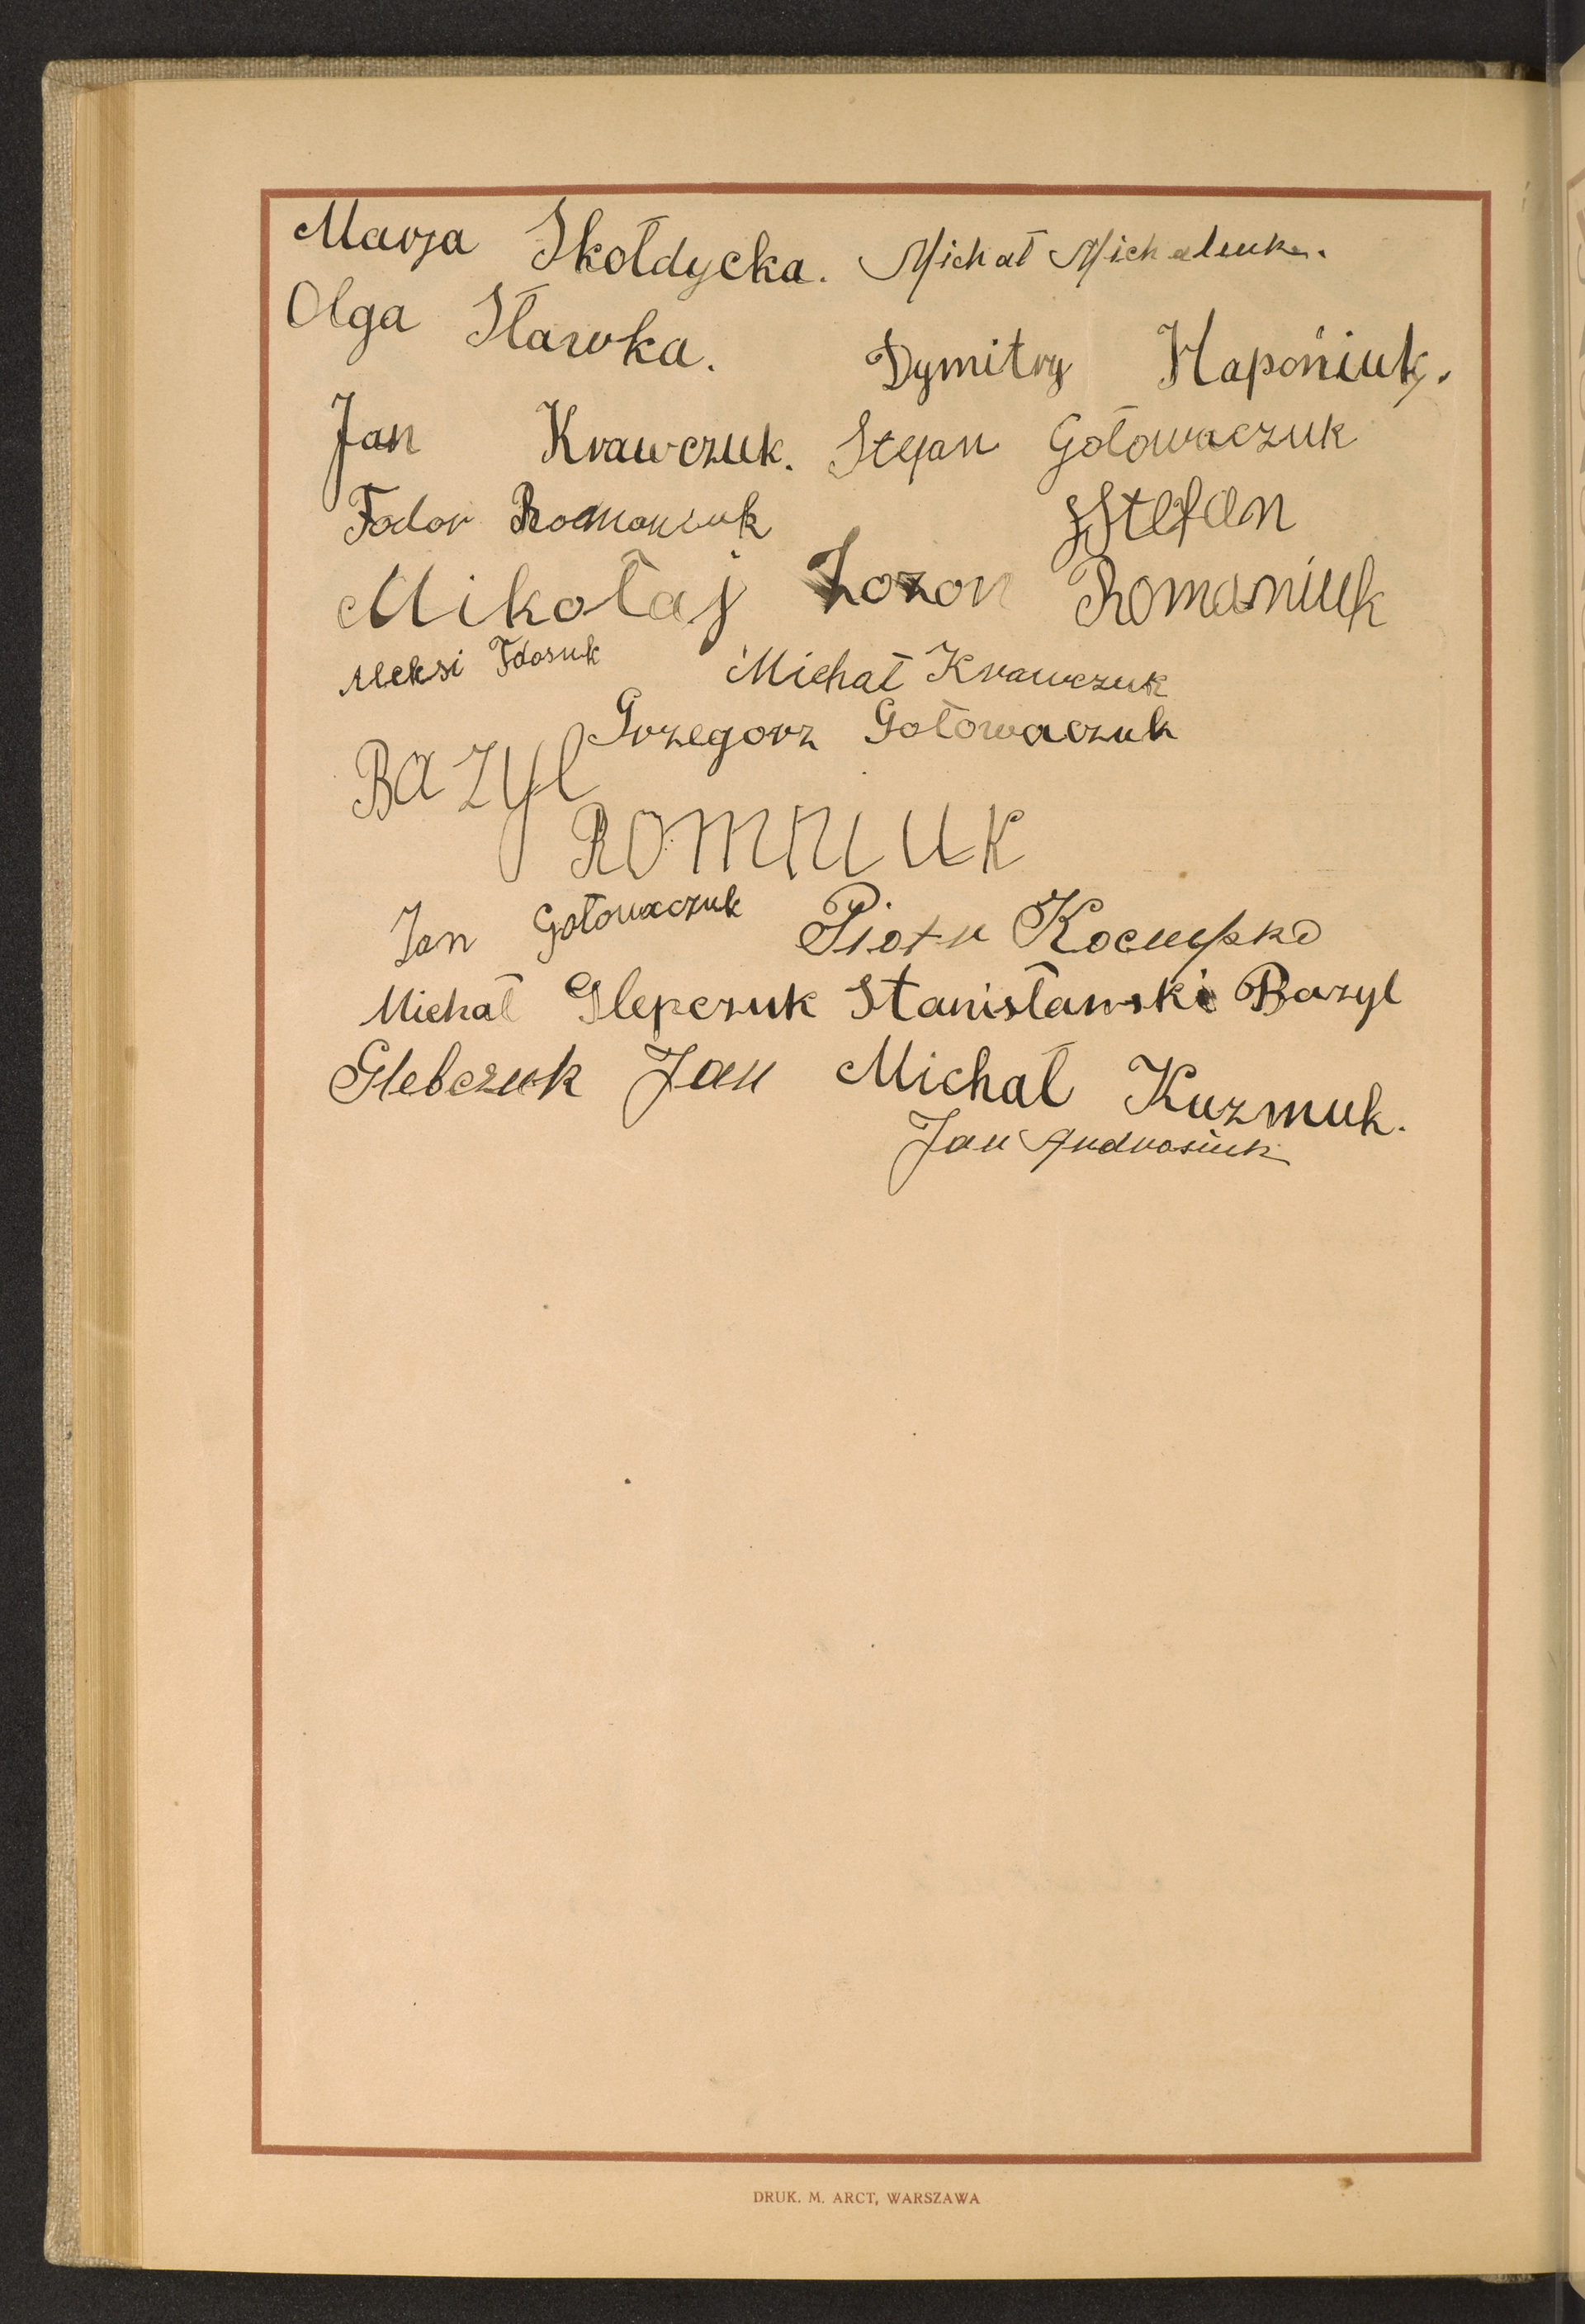 Marja Skołdycka. Michał Michaluk.
Olga Sławka. Dymitry Haponiuk.
Jan Krawczuk. Stefan Gołowaczuk
Fodor Romanzuk Stefan
Mikołaj Zozon Romaniuk
Aleksi Fdosuk Michał Krawczuk
Grzegorz Gołowaczuk
BAZyl
ROMNIUK
Jan Gołowaczuk Piotr
Michał Glepczuk Stanisławski Bazyl
Glebczuk Jan Michał Kuzmuk.
Jan Androsiuk
DRUK. M. ARCT, WARSZAWA